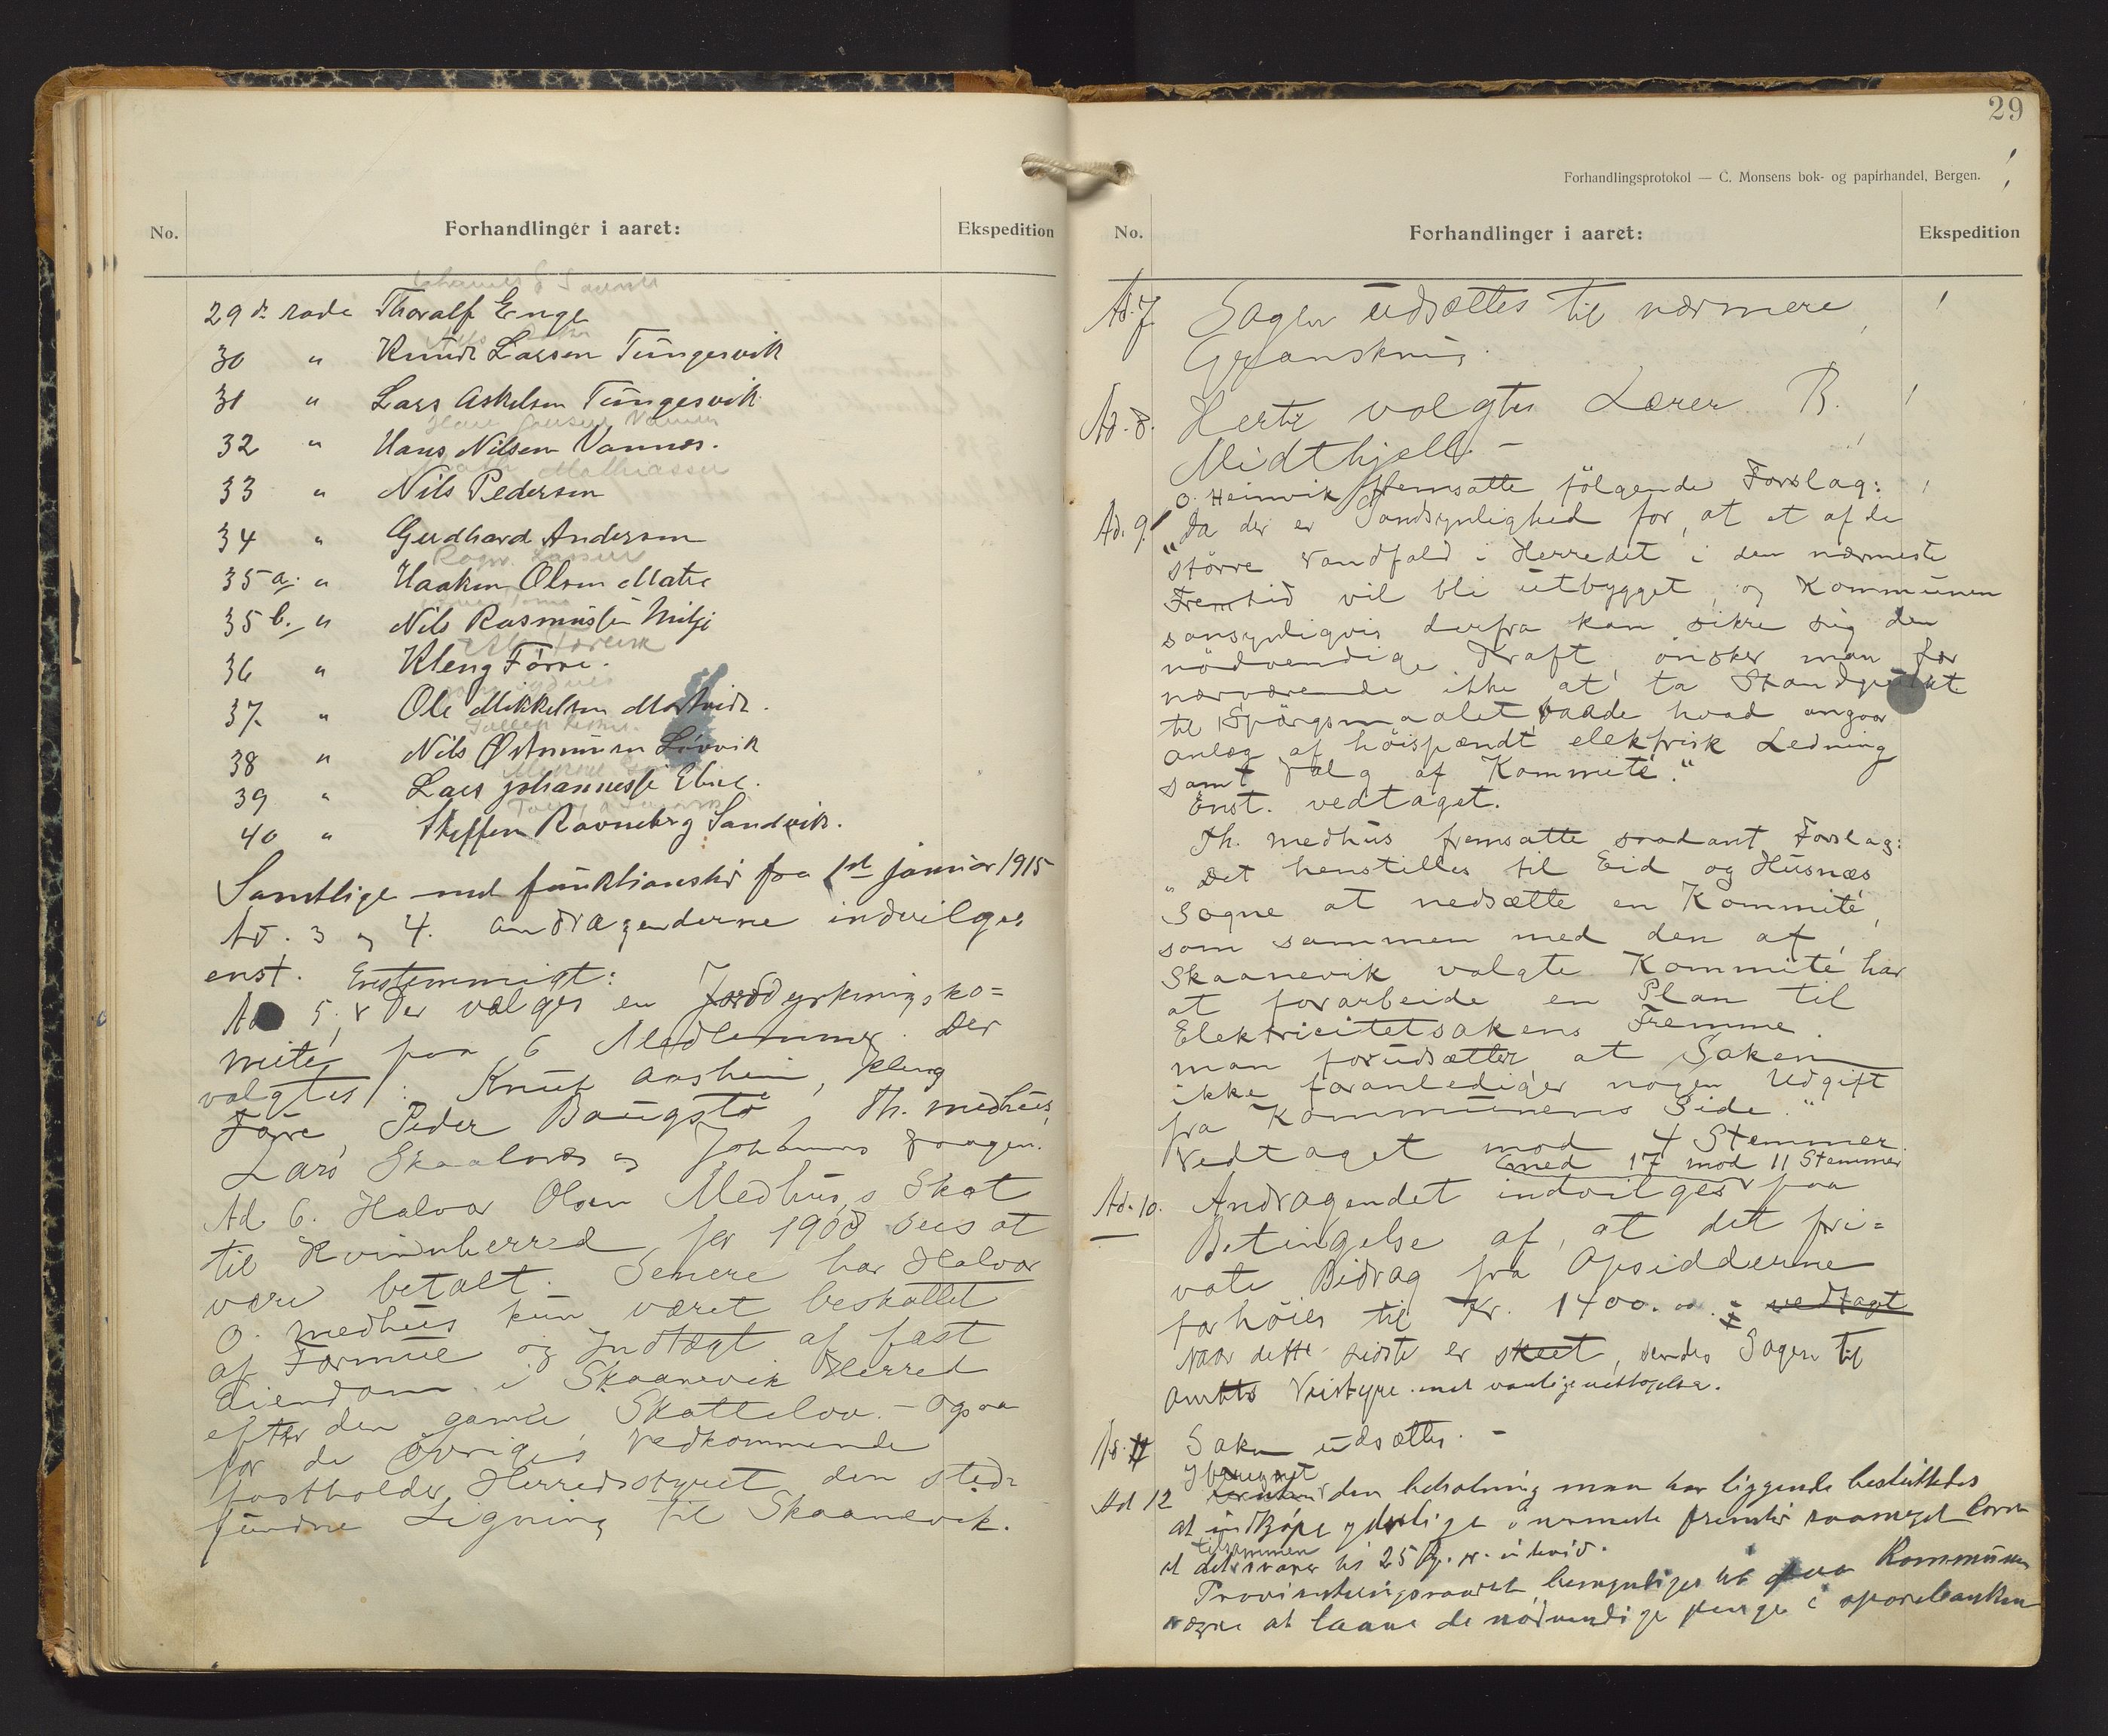 No.
Forhandlinger i aaret:
Ekspedition
29de rode Thoralf Enge
30 " Knudt Larsen Tungesvik
31 " Lars Askelsen Tungesvik
32 " Hans Nilsen Vannes.
33 " Nils Pedersen
34 " Gudhard Andersen
35 a. " Haakon Olsen Matre
35 b. " Nils Rasmussen Milje
36 " Kleng Førre.
37 " Ole Mikkelsen
38 " Nils Østmunsen Løvvik
39 " Lars Johannesse
40 " Steffen Ravneberg Sandvik.
Samtlige med funktionstid fra 1ste januar 1915
Ad. 3 og 4. andragenderne indvilges
enst. Enstemmigt:
Ad 5. Der vælges en Jorddyrkningsko=
mite paa 6 Medlemmer. Der
valgtes: Knut Aasheim, Kleng
Føre, Peder Baugstø Th. Medhus,
Lars Skaalnes og Johannes Vaagen.
Ad 6. Halvor Olsen Medhus,s Skat
til Kvinnherred for 1908 sees at
være betalt. Senere har Halvor
O. Medhus kun været beskattet
af Formue og Indtægt af fast
Eiendom i Skaanevik Herred
efter den gamle Skattelov. - Ogsaa
for de övrige's Vedkommende
fastholder Herredsstyret den sted=
fundne Ligning til Skaanevik.
29
Forhandlingsprotokol — C. Monsens bok- og papirhandel, Bergen.
No.
Forhandlinger i aaret:
Ekspedition
Ad. 7. Sagen udsættes til nærmere
Granskning.
Ad. 8. Hertil valgtes Lærer R.
Midthjell. -
O. Heimvik fremsatte fölgende Forslag:
Ad. 9. "Da der er Sandsynlighed for, at et af de
större Vandfald i Herredet i den nærmeste
Fremtid vil bli utbygget, og Kommunen
sansynligvis derfra kan sikre sig den
nödvendige Kraft, önsker man for
nærværende ikke at ta Standpunkt
til Spörgsmaalet, baade hvad angaar
anlæg af höispændt elektrisk Ledning
samt Valg af Kommité."
Enst. vedtaget.
Th. Medhus fremsatte saadant Forslag:
"Det henstilles til Eid og Husnæs
Sogne at nedsætte en Kommité,
som sammen med den af
Skaanevik valgte Kommité har
at forarbeide en Plan til
Elektricitetsakens Fremme.
Man forudsætter at Saken
ikke foranlediger nogen Udgift
fra Kommunens Side."
Vedtaget mod 4 Stemmer
med 17 mod 11 Stemmer
Ad. 10. Andragendet indvilges paa
Betingelse af, at det pri=
vate Bidrag fra Opsidderne
forhöies til Kr. 1400.00. vedtagt
Naar dette sidste er skeet, sendes Sagen til
amtets Veistyre med vanlig vedtagelse.
Ad. 11 Saken udsættes. -
Iberegnet
Ad 12 den beholning man har liggende besluttedes
at indkjøpe yderligere i nærmeste fremtid saameget korn
tilsammen
at det svarer til 25 kg. pr. individ.
Provianteringsraadet bemyndiges til paa Kommunens
vægne at laane de nødvendige penge i sparebanken